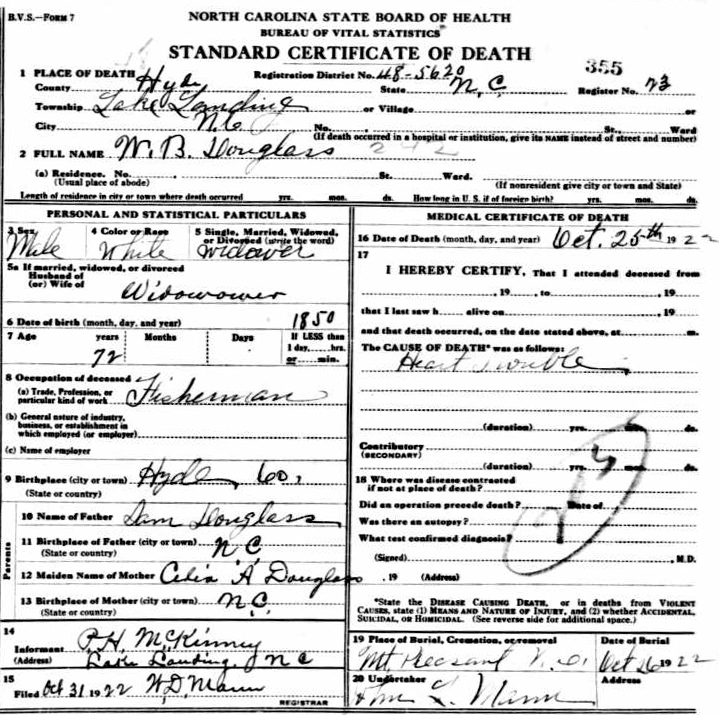 B.V.S.—FORM 7
NORTH CAROLINA STATE BOARD OF HEALTH
BUREAU OF VITAL STATISTICS
STANDARD CERTIFICATE OF DEATH
355
1 PLACE OF DEATH
County Hyde Registration District No. 48-5620 State N.C. Register No. 23
Township Lake Landing or Village or
City N.C. No. St., Ward
(If death occurred in a hospital or institution, give its NAME instead of street and number)
2 FULL NAME W. B. Douglass 242
(a) Residence. No. St. Ward.
(Usual place of abode) (If nonresident give city or town and State)
Length of residence in city or town where death occurred yrs. mos. ds. How long in U. S. if of foreign birth? yrs. mos. ds.
PERSONAL AND STATISTICAL PARTICULARS
3 Sex Male
4 Color or Race White
5 Single, Married, Widowed, or Divorced (write the word) Widower
5a If married, widowed, or divorced
Husband of
(or) Wife of Widowower
6 Date of birth (month, day, and year) 1850
7 Age years Months Days If LESS than
72 1 day, hrs.
or min.
8 Occupation of deceased
(a) Trade, Profession, or
particular kind of work Fisherman
(b) General nature of industry,
business, or establishment in
which employed (or employer)
(c) Name of employer
9 Birthplace (city or town) Hyde Co,
(State or country)
Parents
10 Name of Father Sam Douglass
11 Birthplace of Father (city or town) N C
(State or country)
12 Maiden Name of Mother Celia A Douglass
13 Birthplace of Mother (city or town) N C.
(State or country)
14
Informant P. H. McKinney
(Address) Lake Landing, N C
15
Filed Oct 31, 1922 W. D. Mann
REGISTRAR
MEDICAL CERTIFICATE OF DEATH
16 Date of Death (month, day, and year) Oct. 25th 1922
17
I HEREBY CERTIFY, That I attended deceased from
, 19 , to , 19
that I last saw h alive on , 19
and that death occurred, on the date stated above, at m.
The CAUSE OF DEATH* was as follows:
Heart Trouble
(duration) yrs. mos. ds.
Contributory
(SECONDARY)
(duration) yrs. mos. ds.
18 Where was disease contracted
if not at place of death?
Did an operation precede death? Date of
Was there an autopsy?
What test confirmed diagnosis?
(Signed) , M.D.
, 19 (Address)
*State the DISEASE CAUSING DEATH, or in deaths from VIOLENT
CAUSES, state (1) MEANS AND NATURE OF INJURY, and (2) whether ACCIDENTAL,
SUICIDAL, or HOMICIDAL. (See reverse side for additional space.)
19 Place of Burial, Cremation, or removal Date of Burial
Mt. Pleasant N.C. Oct 26 1922
20 Undertaker
L. Mann